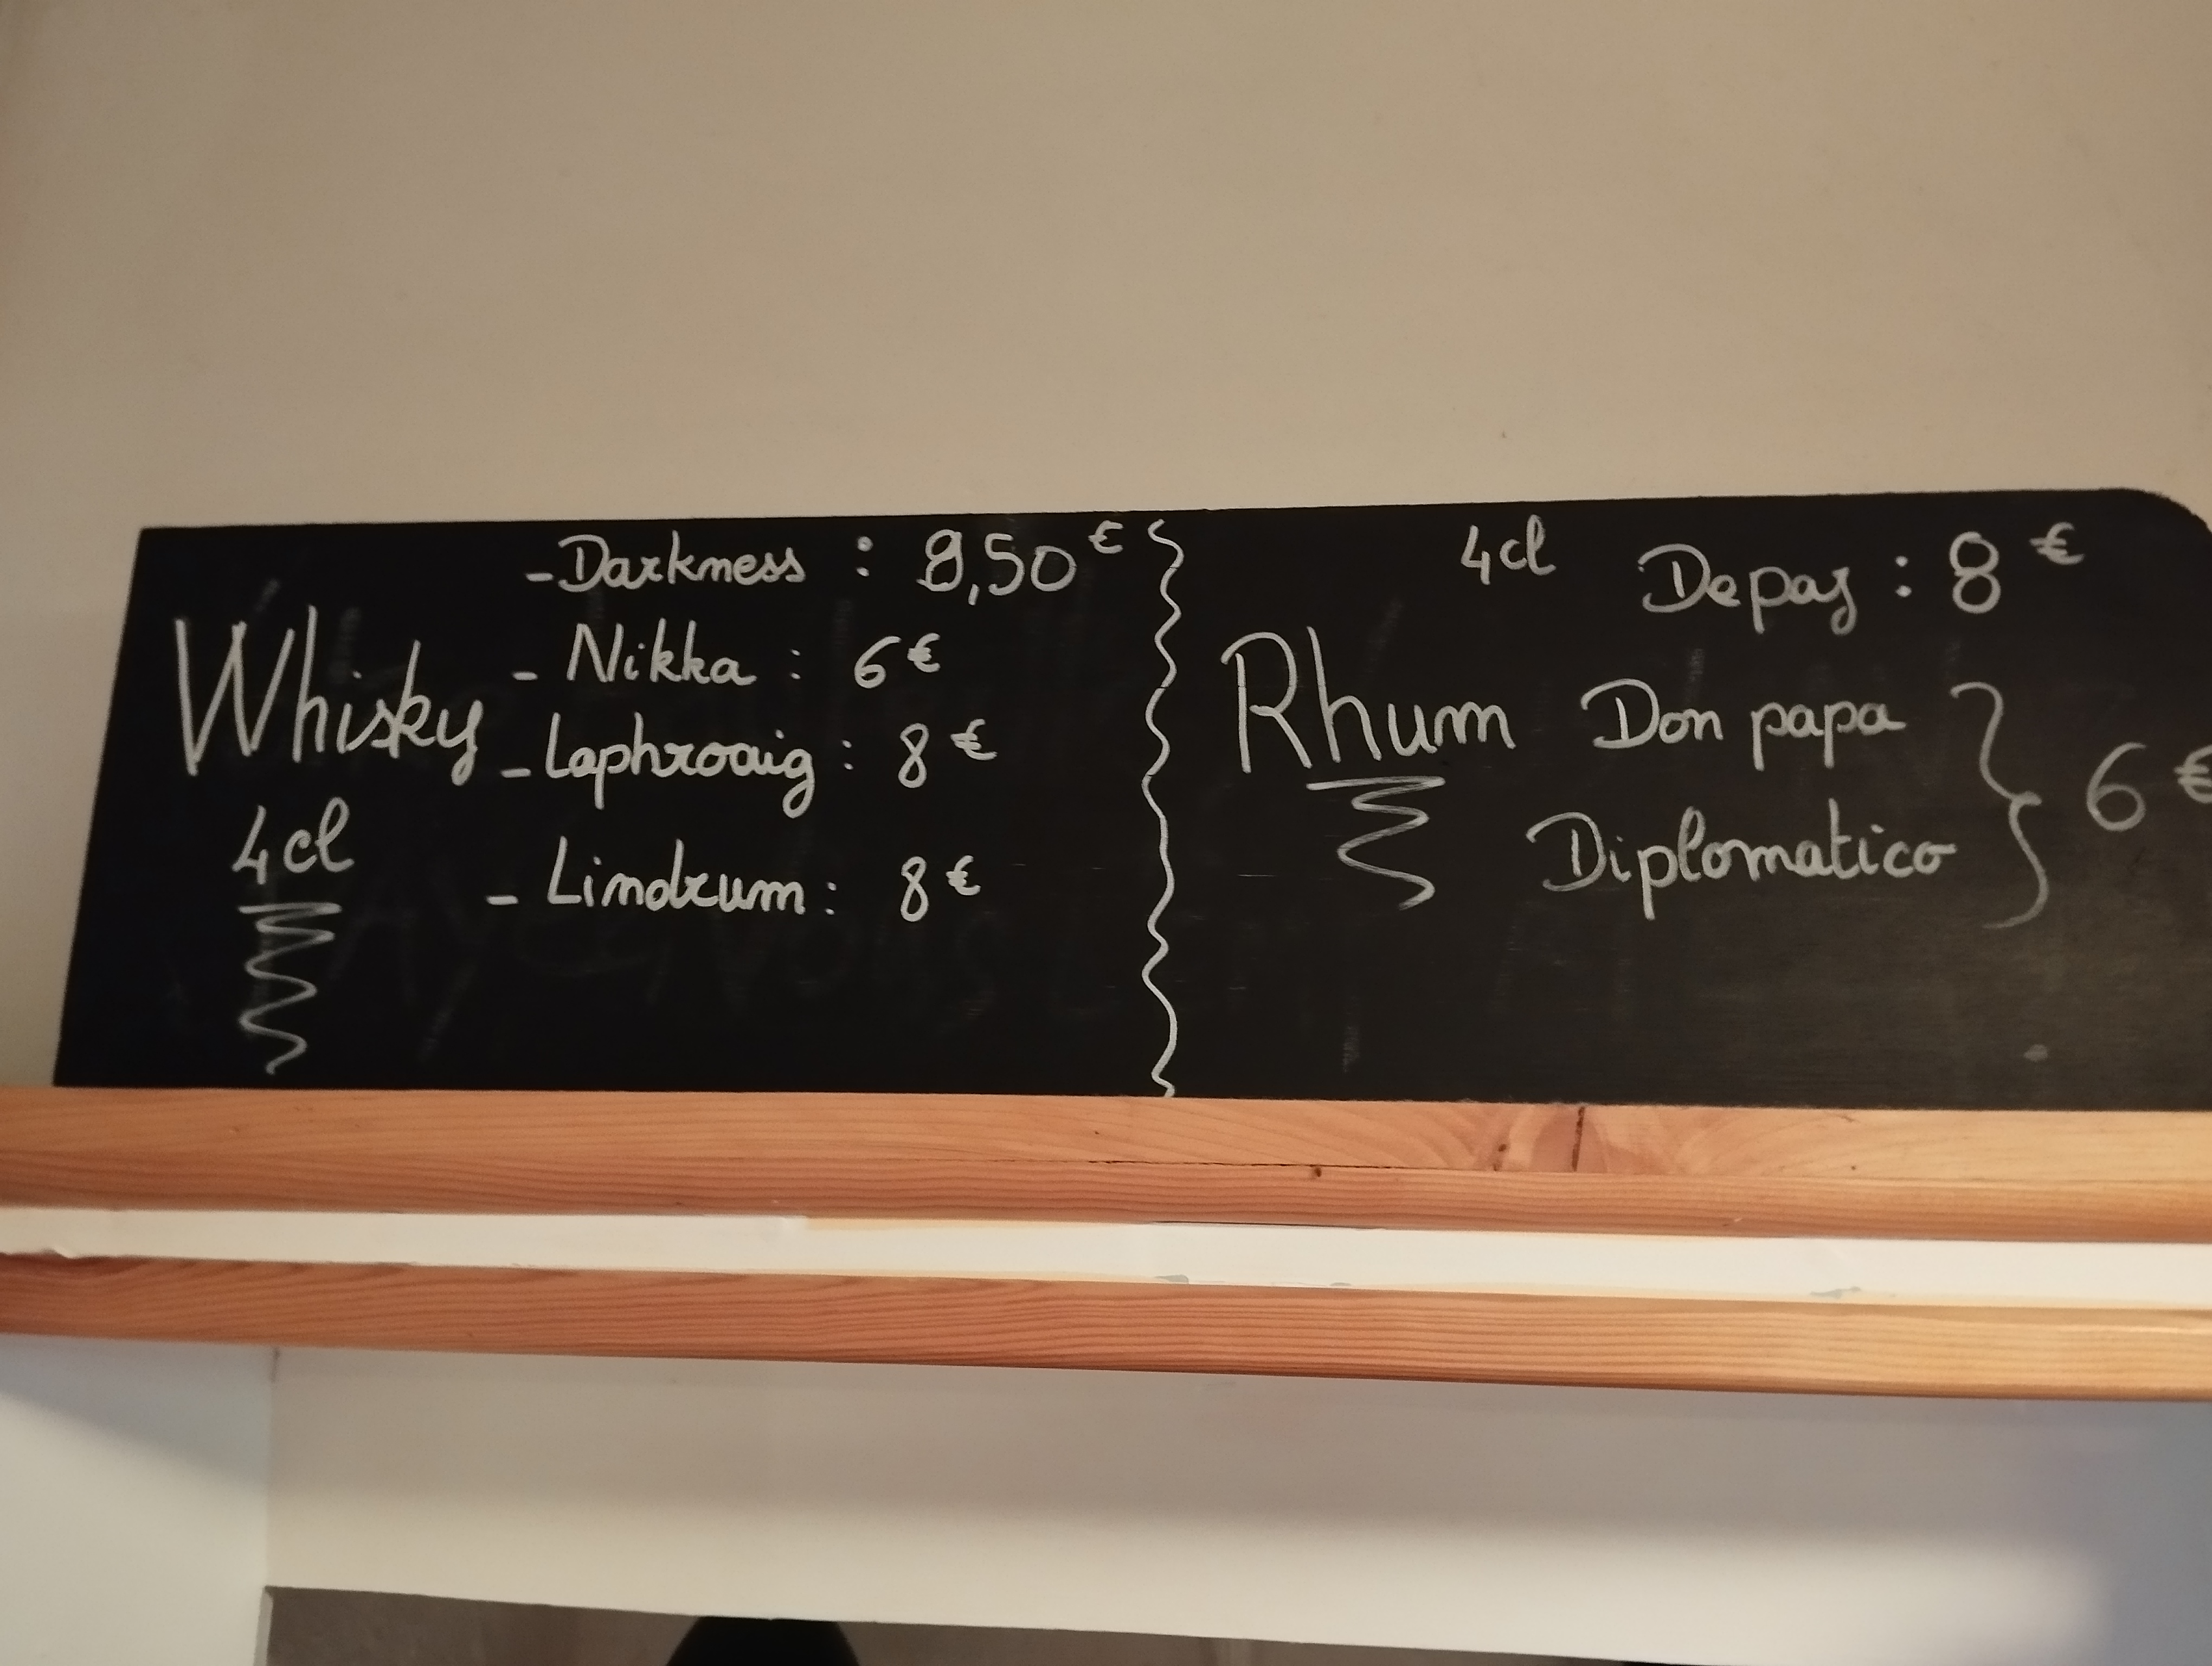 Whisky
4cl
- Darkness : 9,50€
- Nikka : 6€
- Laphroaig : 8€
- Lindrum : 8€
4cl
Rhum
Depaz : 8€
Don papa
Diplomatico
6€